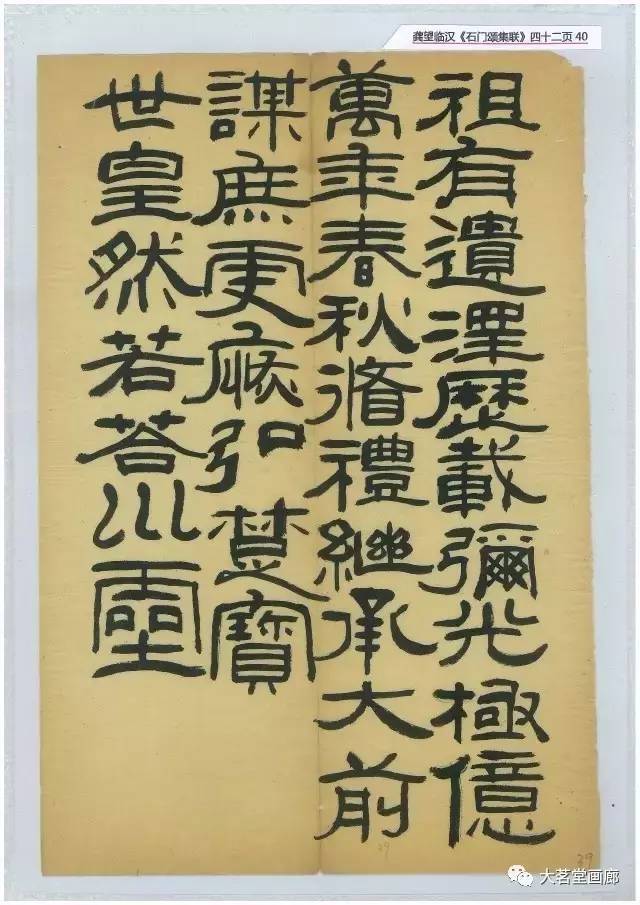 龚望临汉《石门颂集联》四十二页 40
祖有遺澤歷載彌光極億
萬年春秋脩禮繼承大前
謀庶更弘楚寶
世皇然若荅川靈
39
大茗堂画廊